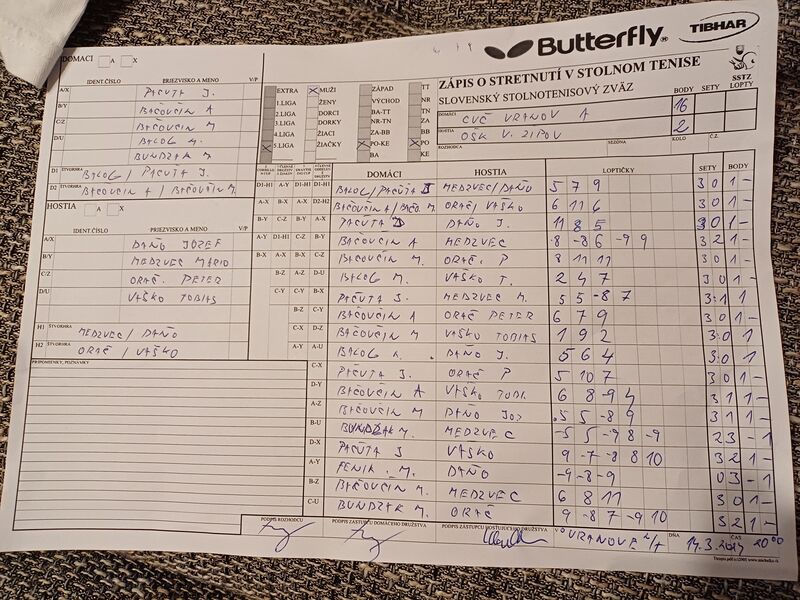 Butterfly
TIBHAR
ZÁPIS O STRETNUTÍ V STOLNOM TENISE
SLOVENSKÝ STOLNOTENISOVÝ ZVÄZ
SSTZ
DOMÁCI A X
IDENT.ČÍSLO PRIEZVISKO A MENO V/P
A/X PAČUTA J.
B/Y BAČOVČIN A
C/Z BAČOVČIN M
D/U BALOG M.
BUNDZAK M.
D1 ŠTVORHRA BALOG / PAČUTA J.
D2 ŠTVORHRA BAČOVČIN A / BAČOVČIN M.
HOSTIA A X
IDENT.ČÍSLO PRIEZVISKO A MENO V/P
A/X DAŇO JOZEF
B/Y MEDZVEC MARIO
C/Z ORAČ PETER
D/U VAŠKO TOBIAS
H1 ŠTVORHRA MEDZVEC / DAŇO
H2 ŠTVORHRA ORAČ / VAŠKO
PRIPOMIENKY, POZNÁMKY
EXTRA X MUŽI ZÁPAD TT
1.LIGA ŽENY VÝCHOD NR
2.LIGA DORCI BA-TT TN
3.LIGA DORKY NR-TN ZA
4.LIGA ŽIACI ZA-BB BB
X 5.LIGA ŽIAČKY X PO-KE X PO
KE
BODY SETY LOPTY
DOMÁCI CVČ VRANOV A 16
HOSTIA OŠK V. ŽIPOV 2
ROZHODCA SEZÓNA KOLO Č.Z.
DOMÁCI HOSTIA LOPTIČKY SETY BODY
D1-H1 A-Y D1-H1 D1-H1 BALOG / PAČUTA J MEDZVEC / DAŇO 5 7 9 3 0 1 -
A-X B-X A-X D2-H2 BAČOVČIN A / BAČO. M. ORAČ / VAŠKO 6 11 6 3 0 1 -
B-Y C-Z B-Y A-X PAČUTA J DAŇO J. 11 8 5 3 0 1 -
A-Y D1-H1 C-Z B-Y BAČOVČIN A MEDZVEC 8 -8 -6 9 9 3 2 1 -
B-X A-X B-X C-Z BAČOVČIN M. ORAČ. P 8 11 11 3 0 1 -
B-Z A-Z D-U BALOG M. VAŠKO T. 2 4 7 3 0 1 -
C-Y C-Y B-X PAČUTA J. MEDZVEC M. 5 5 -8 7 3 1 1
B-Z C-Y BAČOVČIN A ORAČ PETER 6 7 9 3 0 1 -
C-X D-Z BAČOVČIN M VAŠKO TOBIAS 1 9 2 3 0 1
A-Y A-U DAŇO J. 5 6 4 3 0 1
C-X PAČUTA J. ORAČ P 5 10 7 3 0 1 -
D-Y BAČOVČIN A VAŠKO TOBI. 6 8 -9 4 3 1 1 -
A-Z BAČOVČIN M DAŇO JOZ 5 5 -8 9 3 1 1 -
B-U BUNDZAK M. MEDZVEC -5 5 -9 8 -9 2 3 - 1
D-X PAČUTA J VAŠKO 9 -7 -8 8 10 3 2 1 -
A-Y FENIK. M. DAŇO -9 -8 -9 0 3 - 1
B-Z BAČOVČIN M. MEDZVEC 6 8 11 3 0 1 -
C-U BUNDZAK M. ORAČ 9 -8 7 -9 10 3 2 1 -
PODPIS ROZHODCU PODPIS ZÁSTUPCU DOMÁCEHO DRUŽSTVA PODPIS ZÁSTUPCU HOSŤUJÚCEHO DRUŽSTVA V VRANOVE N/T DŇA 14.3.2017 ČAS 20 00